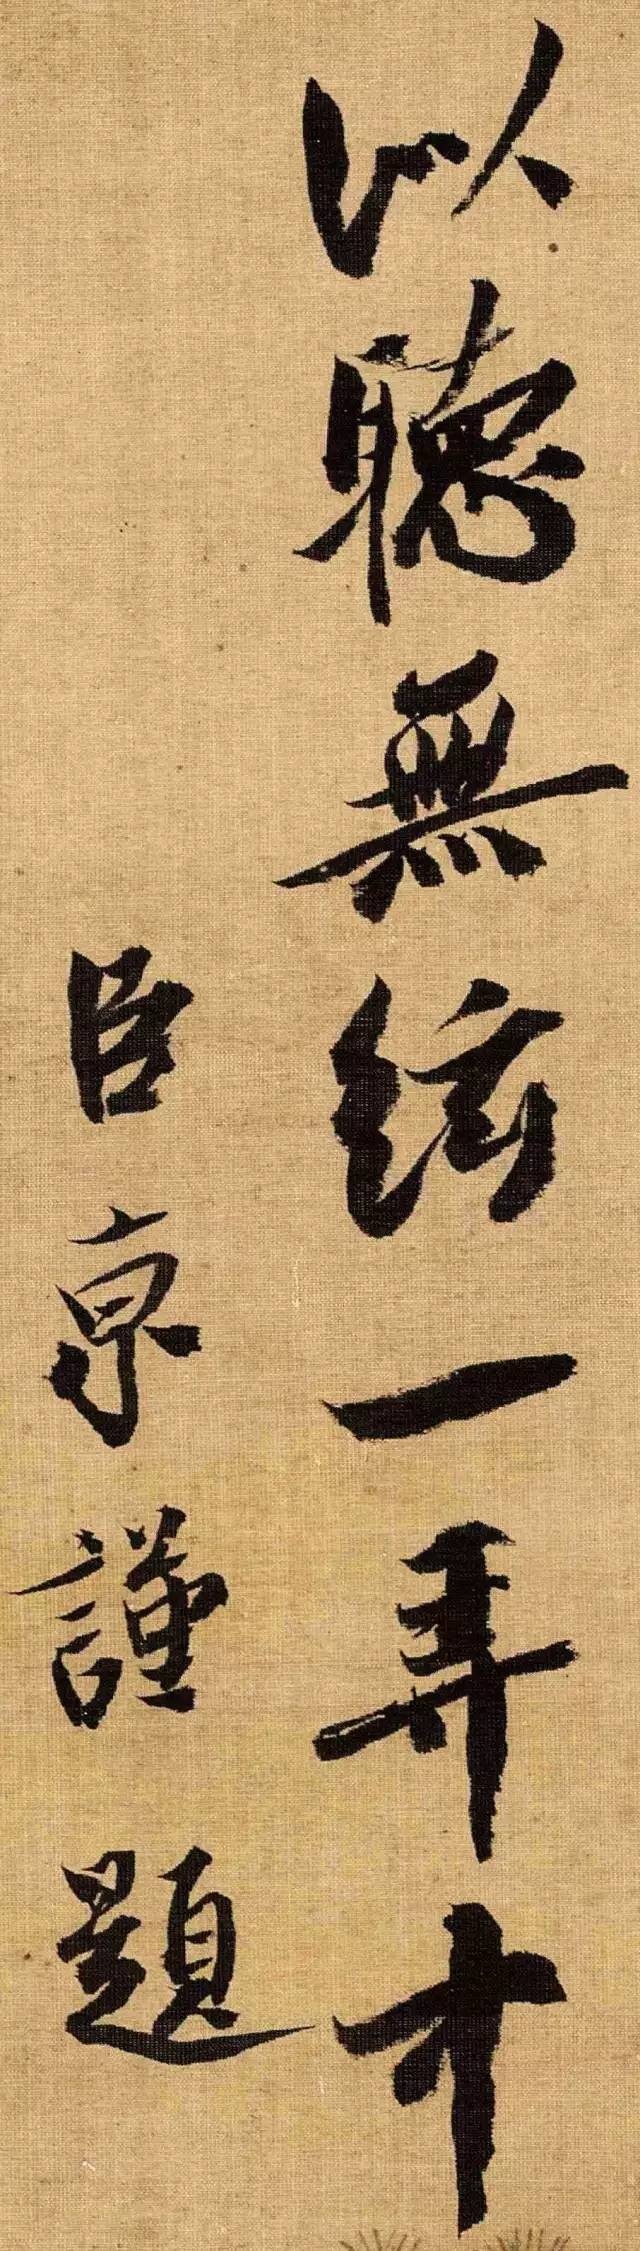 似聽無絃一弄中
臣京謹題